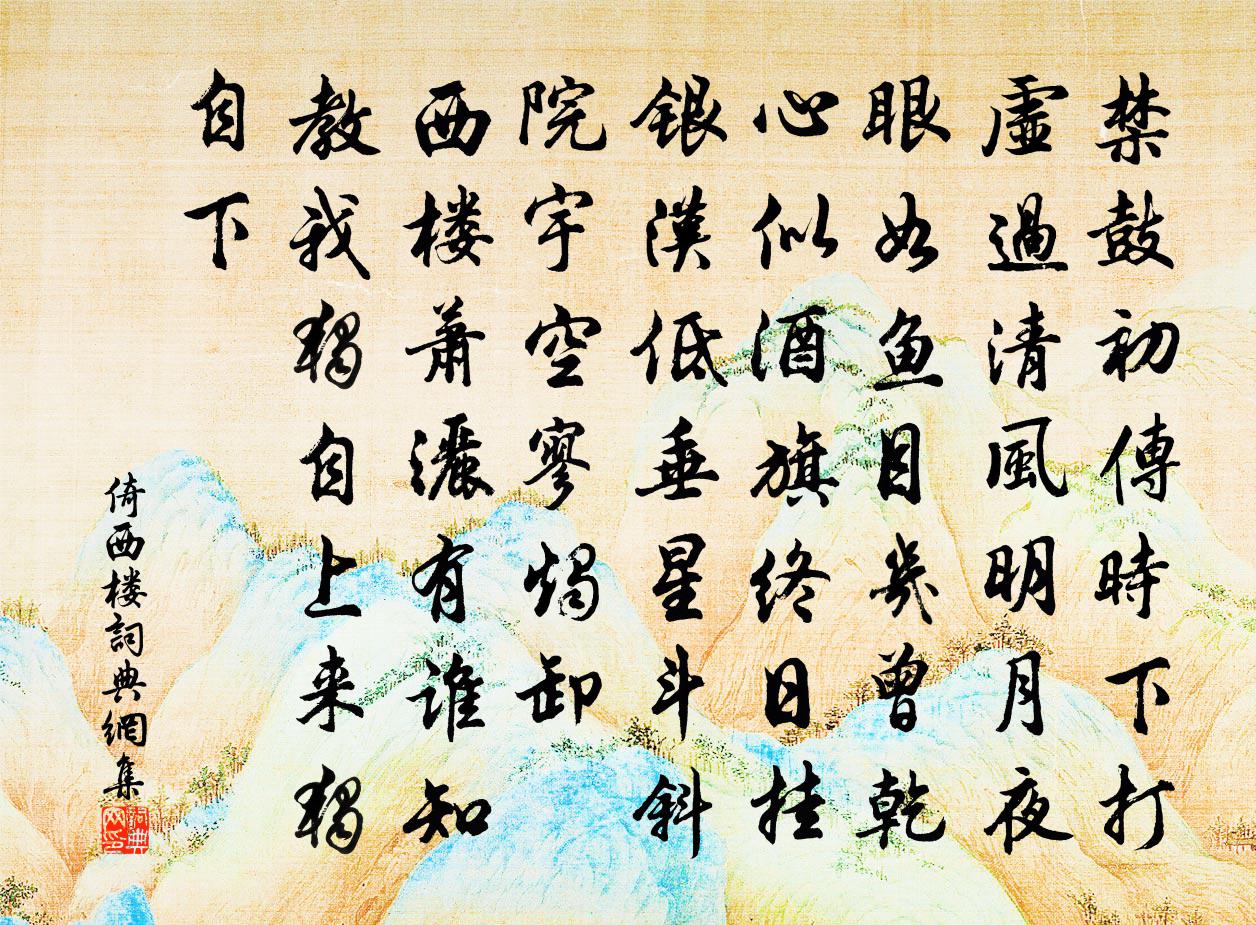 禁鼓初傳時下打
虛過清風明月夜
眼如魚目幾曾乾
心似酒旗終日挂
銀漢低垂星斗斜
院宇空寥燭卸
西楼蕭灑有誰知
教我獨自上来獨
自下
倚西楼詞典網集
詞典网印